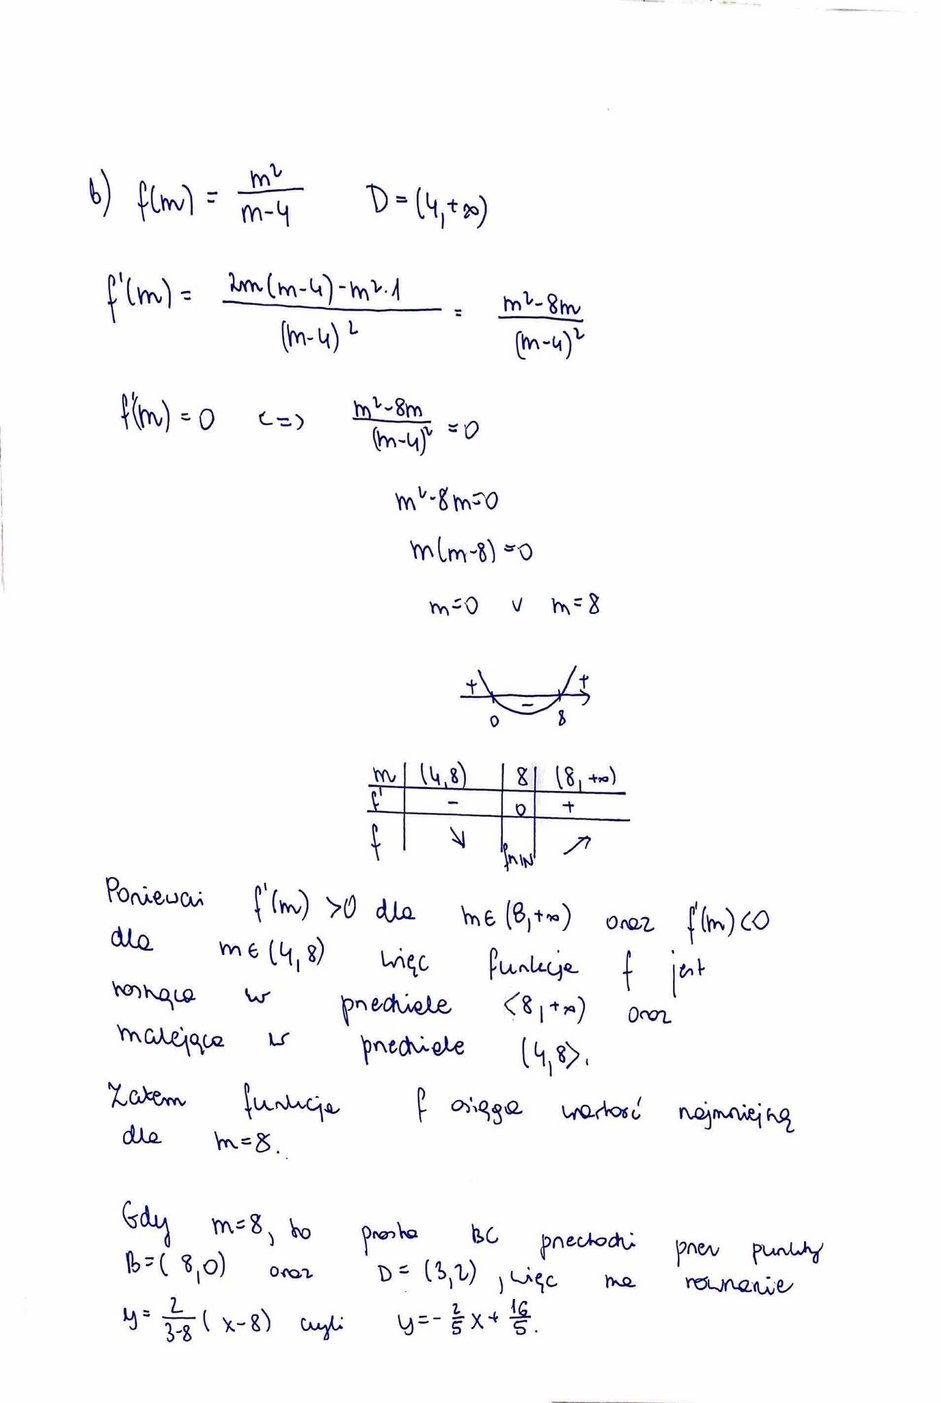 b) f(m) = m²/(m-4) D = (4,+∞)
f'(m) = (2m(m-4)-m²·1)/(m-4)² = (m²-8m)/(m-4)²
f'(m) = 0 <=> (m²-8m)/(m-4)² = 0
m²-8m=0
m(m-8)=0
m=0 v m=8
+ - +
0 8
m | (4,8) | 8 | (8,+∞)
f' | - | 0 | +
f | ↘ | fmin | ↗
Ponieważ f'(m) >0 dla m∈(8,+∞) oraz f'(m)<0
dla m∈(4,8) więc funkcja f jest
rosnąca w przedziale <8,+∞) oraz
malejąca w przedziale (4,8>.
Zatem funkcja f osiąga wartość najmniejszą
dla m=8.
Gdy m=8, to prosta BC przechodzi przez punkty
B=(8,0) oraz D=(3,2), więc ma równanie
y = 2/(3-8) (x-8) czyli y=-2/5 x + 16/5.